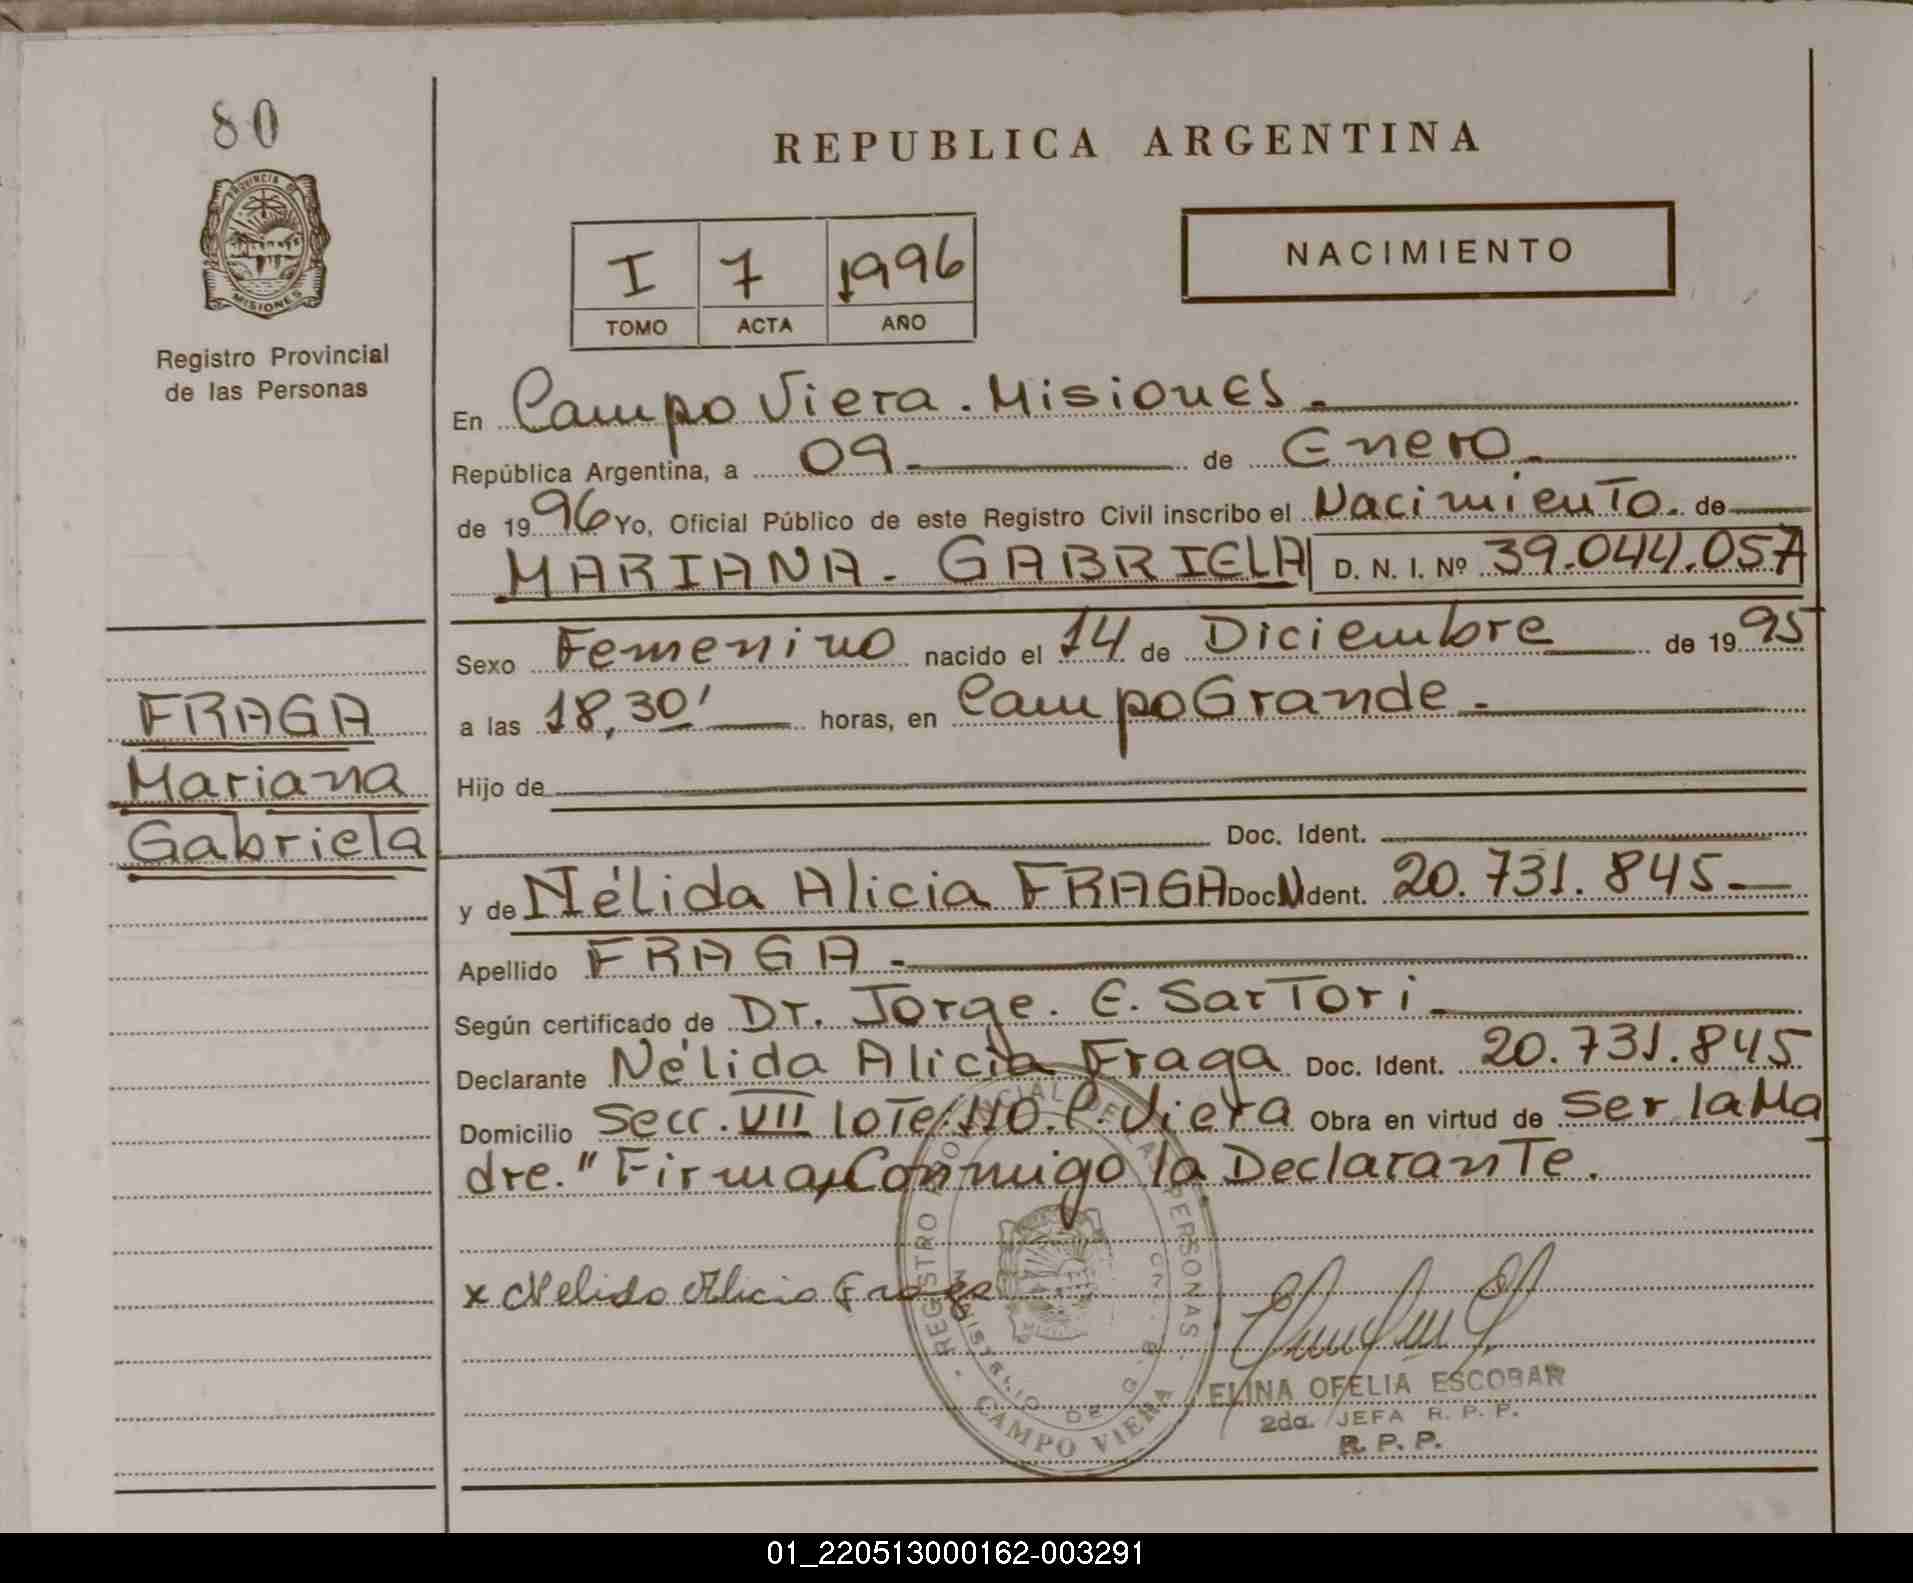 80
PROVINCIA DE
MISIONES
Registro Provincial
de las Personas
FRAGA
Mariana
Gabriela
REPUBLICA ARGENTINA
I 7 1996
TOMO ACTA AÑO
NACIMIENTO
En Campo Viera. Misiones.
República Argentina, a 09 de Enero
de 1996 Yo, Oficial Público de este Registro Civil inscribo el Nacimiento. de
MARIANA. GABRIELA D. N. I. Nº 39.044.057
Sexo Femenino nacido el 14 de Diciembre de 1995
a las 18,30' horas, en Campo Grande.
Hijo de
Doc. Ident.
y de Nélida Alicia FRAGA Doc. Ident. 20.731.845
Apellido FRAGA
Según certificado de Dr. Jorge. E. Sartori
Declarante Nélida Alicia Fraga Doc. Ident. 20.731.845
Domicilio Secc. VII lote 110. C. Viera Obra en virtud de Ser la Ma
dre." Firma Conmigo la Declarante.
x Nelida Alicia Fraga
REGISTRO PROVINCIAL DE LAS PERSONAS
MINISTERIO DE G.
CAMPO VIERA
ELINA OFELIA ESCOBAR
2da. JEFA R. P. P.
R. P. P.
01_220513000162-003291